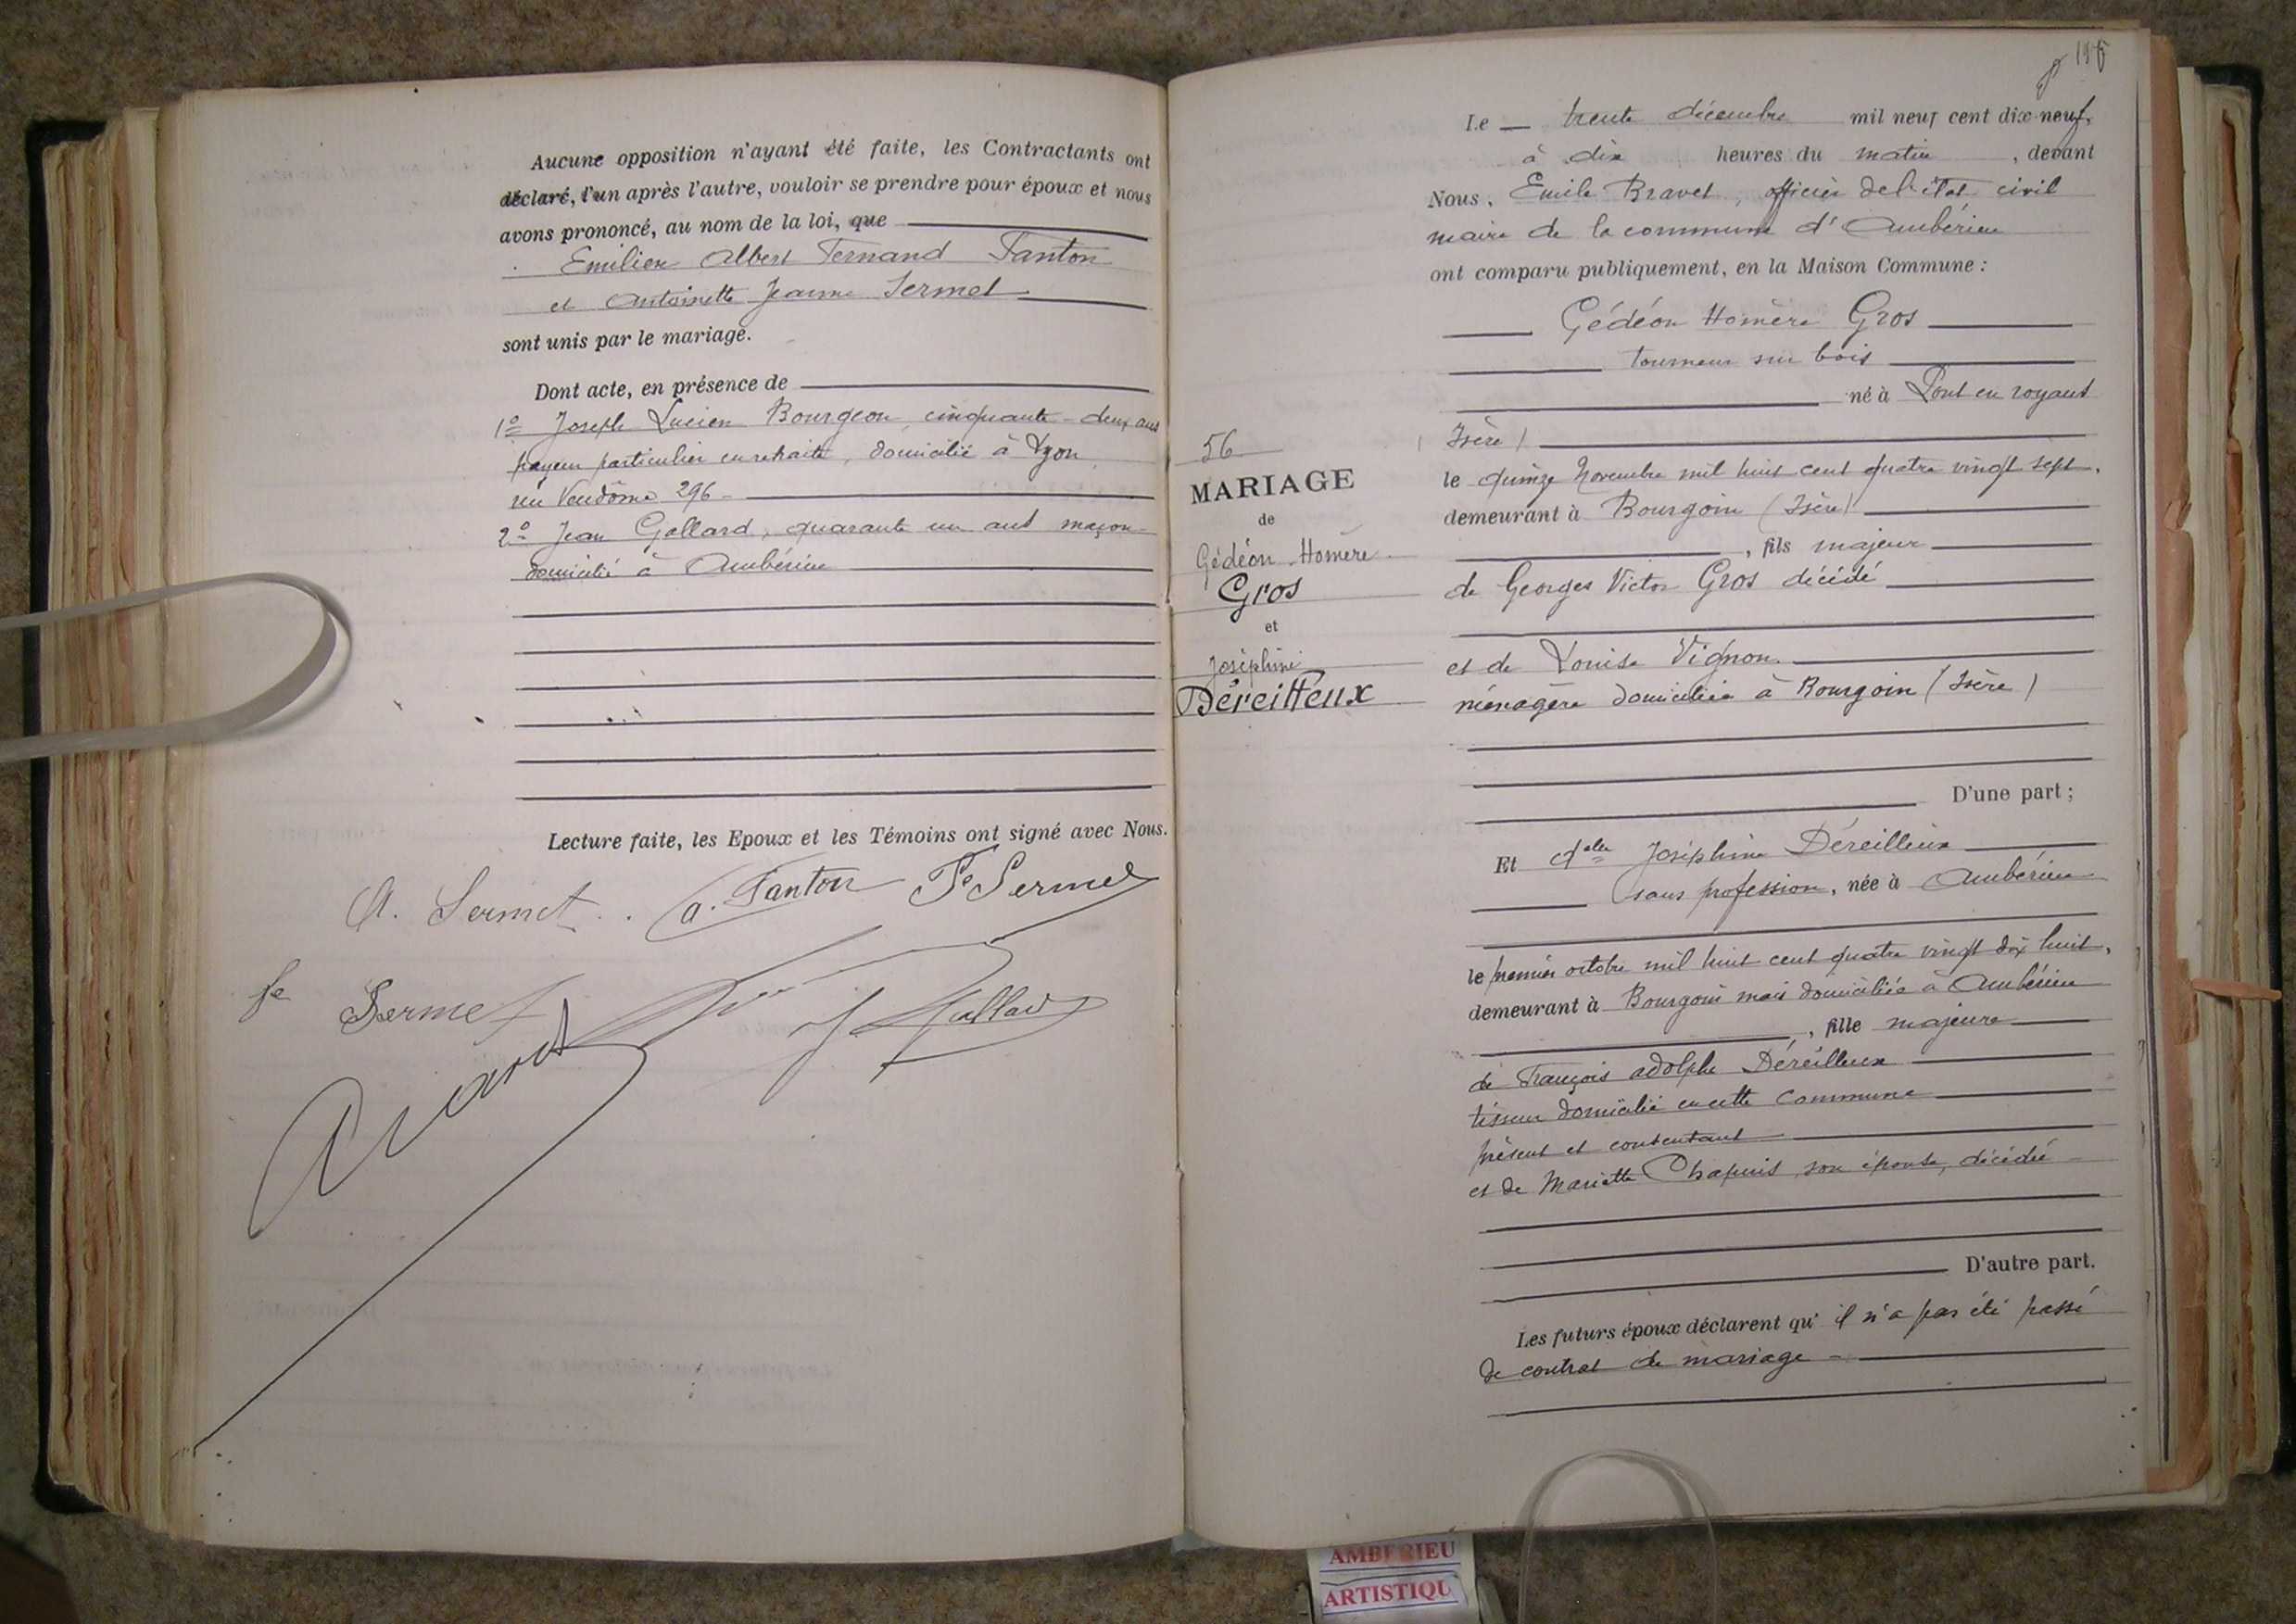 Aucune opposition n'ayant été faite, les Contractants ont
déclaré, l'un après l'autre, vouloir se prendre pour époux et nous
avons prononcé, au nom de la loi, que
Emilien Albert Fernand Fanton
et Antoinette Jeanne Sermet
sont unis par le mariage.
Dont acte, en présence de
1º Joseph Lucien Bourgeon, cinquante-deux ans
payeur particulier en retraite, domicilié à Lyon
rue Vendôme 296
2º Jean Gallard, quarante un ans maçon
domicilié à Ambérieu
Lecture faite, les Epoux et les Témoins ont signé avec Nous.
A. Sermet. a. Fanton Fe Sermet
fe Sermet
J Gallard
195
Le trente décembre mil neuf cent dix-neuf,
à dix heures du matin, devant
Nous, Emile Bravet, officier de l'état civil
maire de la commune d'Ambérieu
ont comparu publiquement, en la Maison Commune :
Gédéon Homère Gros
tourneur sur bois
né à Pont en royans
(Isère)
le quinze Novembre mil huit cent quatre vingt sept,
demeurant à Bourgoin (Isère)
, fils majeur
de Georges Victor Gros décédé
et de Louise Vignon
ménagère domiciliée à Bourgoin (Isère)
D'une part ;
56
MARIAGE
de
Gédéon Homère
Gros
et
Joséphine
Déreilleux
Et delle Joséphine Déreilleux
sans profession, née à Ambérieu
le premier octobre mil huit cent quatre vingt dix huit,
demeurant à Bourgoin mais domiciliée à Ambérieu
, fille majeure
de François Adolphe Déreilleux
tisseur domicilié en cette commune
présent et consentant
et de Mariette Chapuis, son épouse, décédée
D'autre part.
Les futurs époux déclarent qu'il n'a pas été passé
de contrat de mariage
AMBERIEU
ARTISTIQU